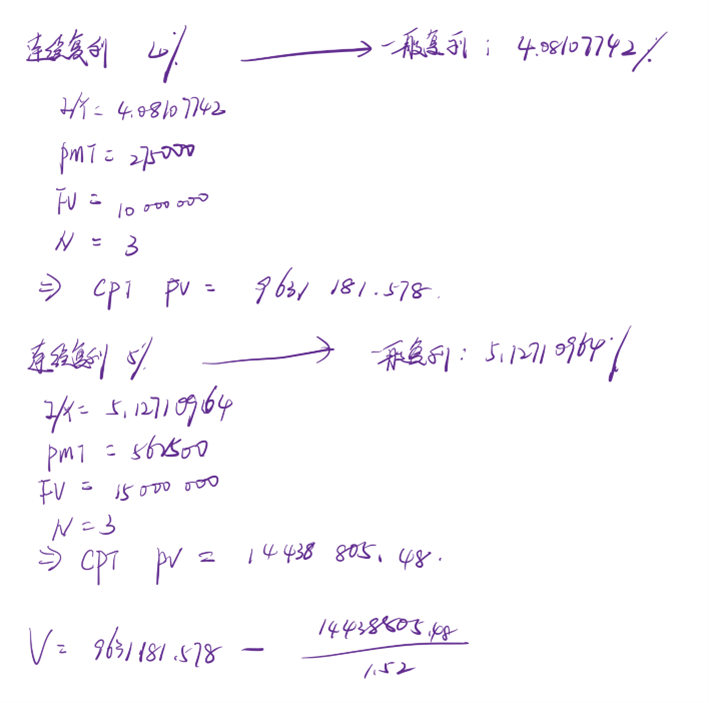 连续复利 4% → 一般复利: 4.08107742%
I/Y = 4.08107742
PMT = 275000
FV = 10 000 000
N = 3
⇒ CPT PV = 9631 181.578.
连续复利 5% → 一般复利: 5.12710964%
I/Y = 5.12710964
PMT = 562500
FV = 15 000 000
N = 3
⇒ CPT PV = 14438 805.48.
V = 9631181.578 - 14438805.48 / 1.52